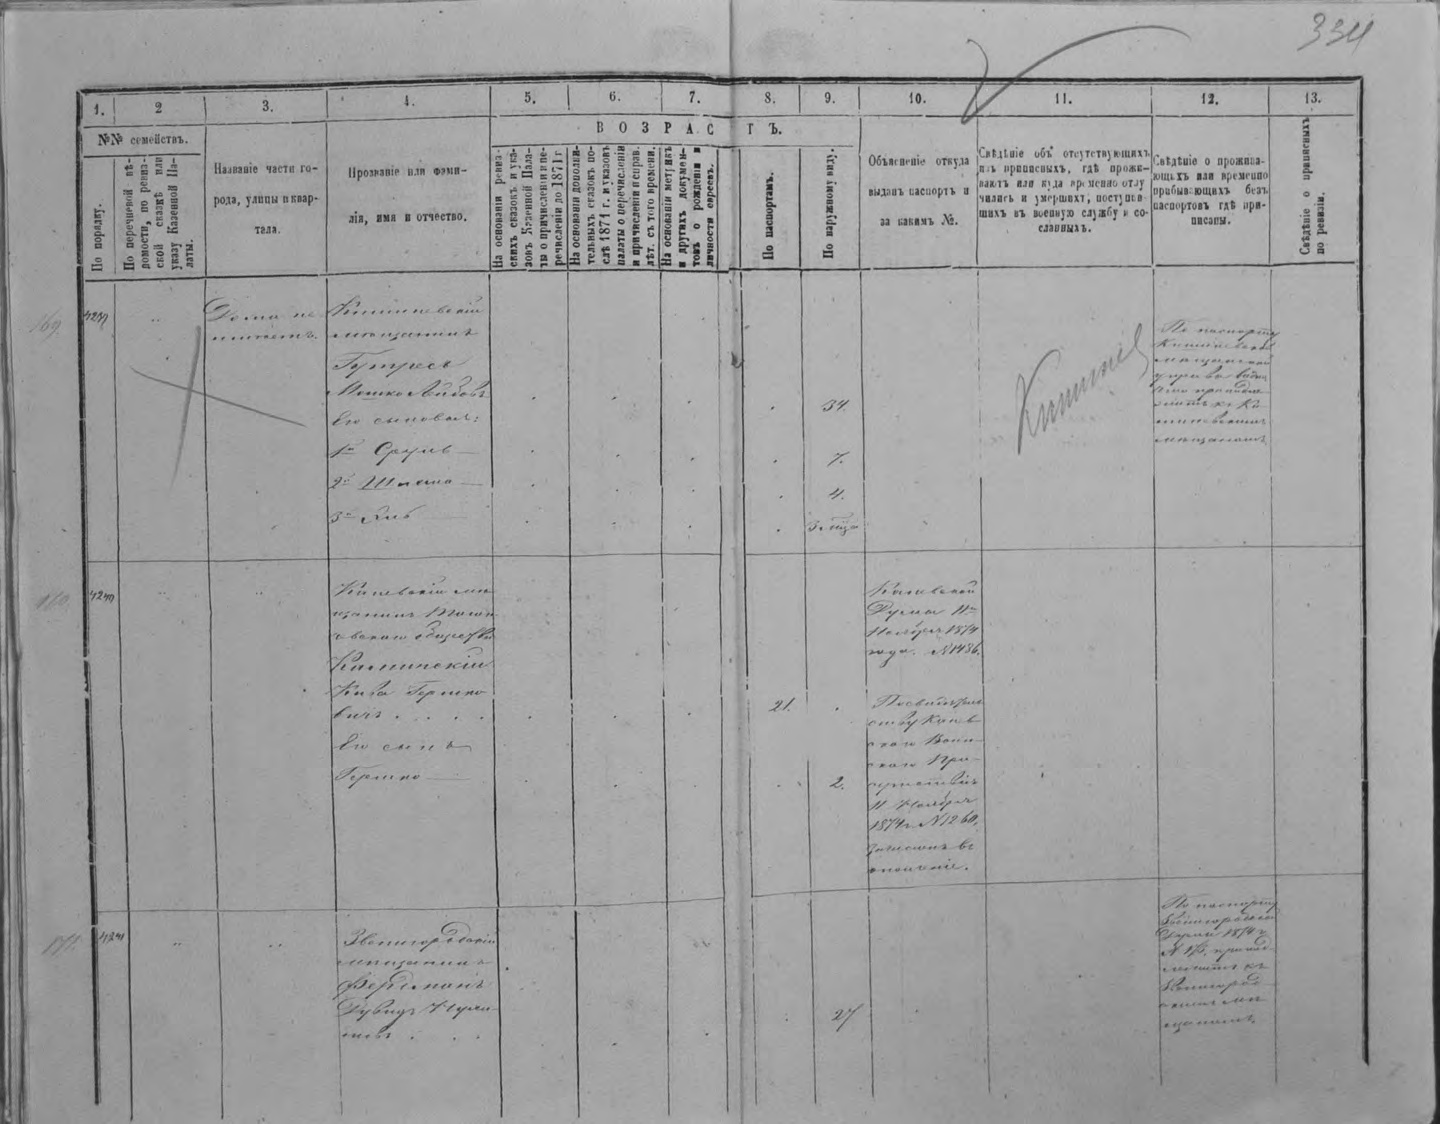 334
1. 2 3. 4. 5. 6. 7. 8. 9. 10. 11. 12. 13.
№№ семействъ.
По порядку.
По перечневой вѣ-
домости, по ревиз-
ской сказкѣ или
указу Казенной Па-
латы.
Названіе части го-
рода, улицы и квар-
тала.
Прозваніе или фами-
лія, имя и отчество.
ВОЗРАСТЪ.
На основаніи ревиз-
скихъ сказокъ и ука-
зовъ Казенной Пала-
ты о причисленіи и пе-
речисленіи до 1871 г.
На основаніи дополни-
тельныхъ сказокъ по-
слѣ 1871 г. и указовъ
палаты о перечисленіи
и причисленіи и справ.
лѣт. съ того времени.
На основаніи метрикъ
и другихъ докумен-
товъ о рожденіи и
личности евреевъ.
По паспортамъ.
По наружному виду.
Объясненіе откуда
выданъ паспортъ и
за какимъ №.
Свѣдѣніе объ отсутствующихъ
изъ приписныхъ, гдѣ прожи-
ваютъ или куда временно отлу-
чились и умершихъ, поступив-
шихъ въ военную службу и со-
сланныхъ.
Свѣдѣніе о прожива-
ющихъ или временно
прибывающихъ безъ
паспортовъ гдѣ при-
писаны.
Свѣдѣніе о приписныхъ
по ревизіи.
169
Дома не
имѣетъ.
Кишиневскій
мѣщанинъ
Гутресъ
Мошко Айбовъ
Его сыновья:
1й Сруль
2й Шлема
3й Янъ
34.
7.
4.
3 мѣца
Кишинев
По паспорту
Кишиневской
мѣщанской
управы видно
что принадле
житъ къ Ки
шиневскимъ
мѣщанамъ
Каневскій мѣ
щанинъ
общества
Каминскій
Кива Гершко
вичъ . . . .
Его сынъ
Гершко
21.
2.
Каневской
Думы 11го
Ноября 1874
года. N 1486.
По свидѣтель
ству Канев
скаго Воин
скаго При
сутствія
11 Ноября
1874 г. N 1260,
зачисленъ въ
ополченіе.
171
Звенигородскій
мѣщанинъ
Фельдманъ
Дувидъ Нухи
мовъ . . .
27
По паспорту
Звенигородской
Думы 1874 г
принад
лежитъ къ
Звенигород
скимъ мѣ
щанамъ